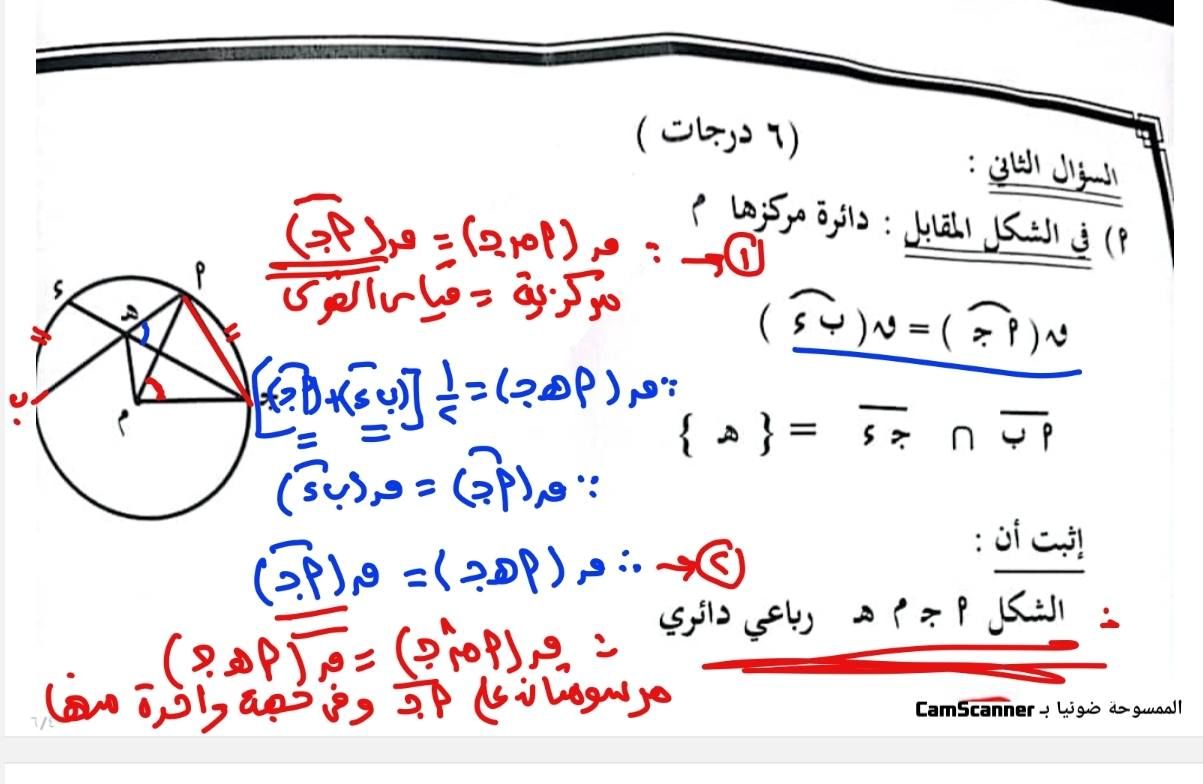 ( ٦ درجات )
السؤال الثاني :
أ) في الشكل المقابل : دائرة مركزها م
ق( أ ج ) = ق( ب ء )
أ ب ∩ ج ء = { ه }
إثبت أن :
∴ الشكل أ ج م ه رباعي دائري
① ← ∵ ق(أ م ج) = ق(أ ج)
مركزية = قياس القوس
∵ ق(أ ه ج) = ١/٢ [ق(ب ء) + ق(أ ج)]
∵ ق(أ ج) = ق(ب ء)
② ← ∴ ق(أ ه ج) = ق(أ ج)
∵ ق(أ م ج) = ق(أ ه ج)
مرسومتان على أ ج وفى جهة واحدة منها
أ
ء
ه
ب
م
ج
الممسوحة ضوئيا بـ CamScanner
٦/٤